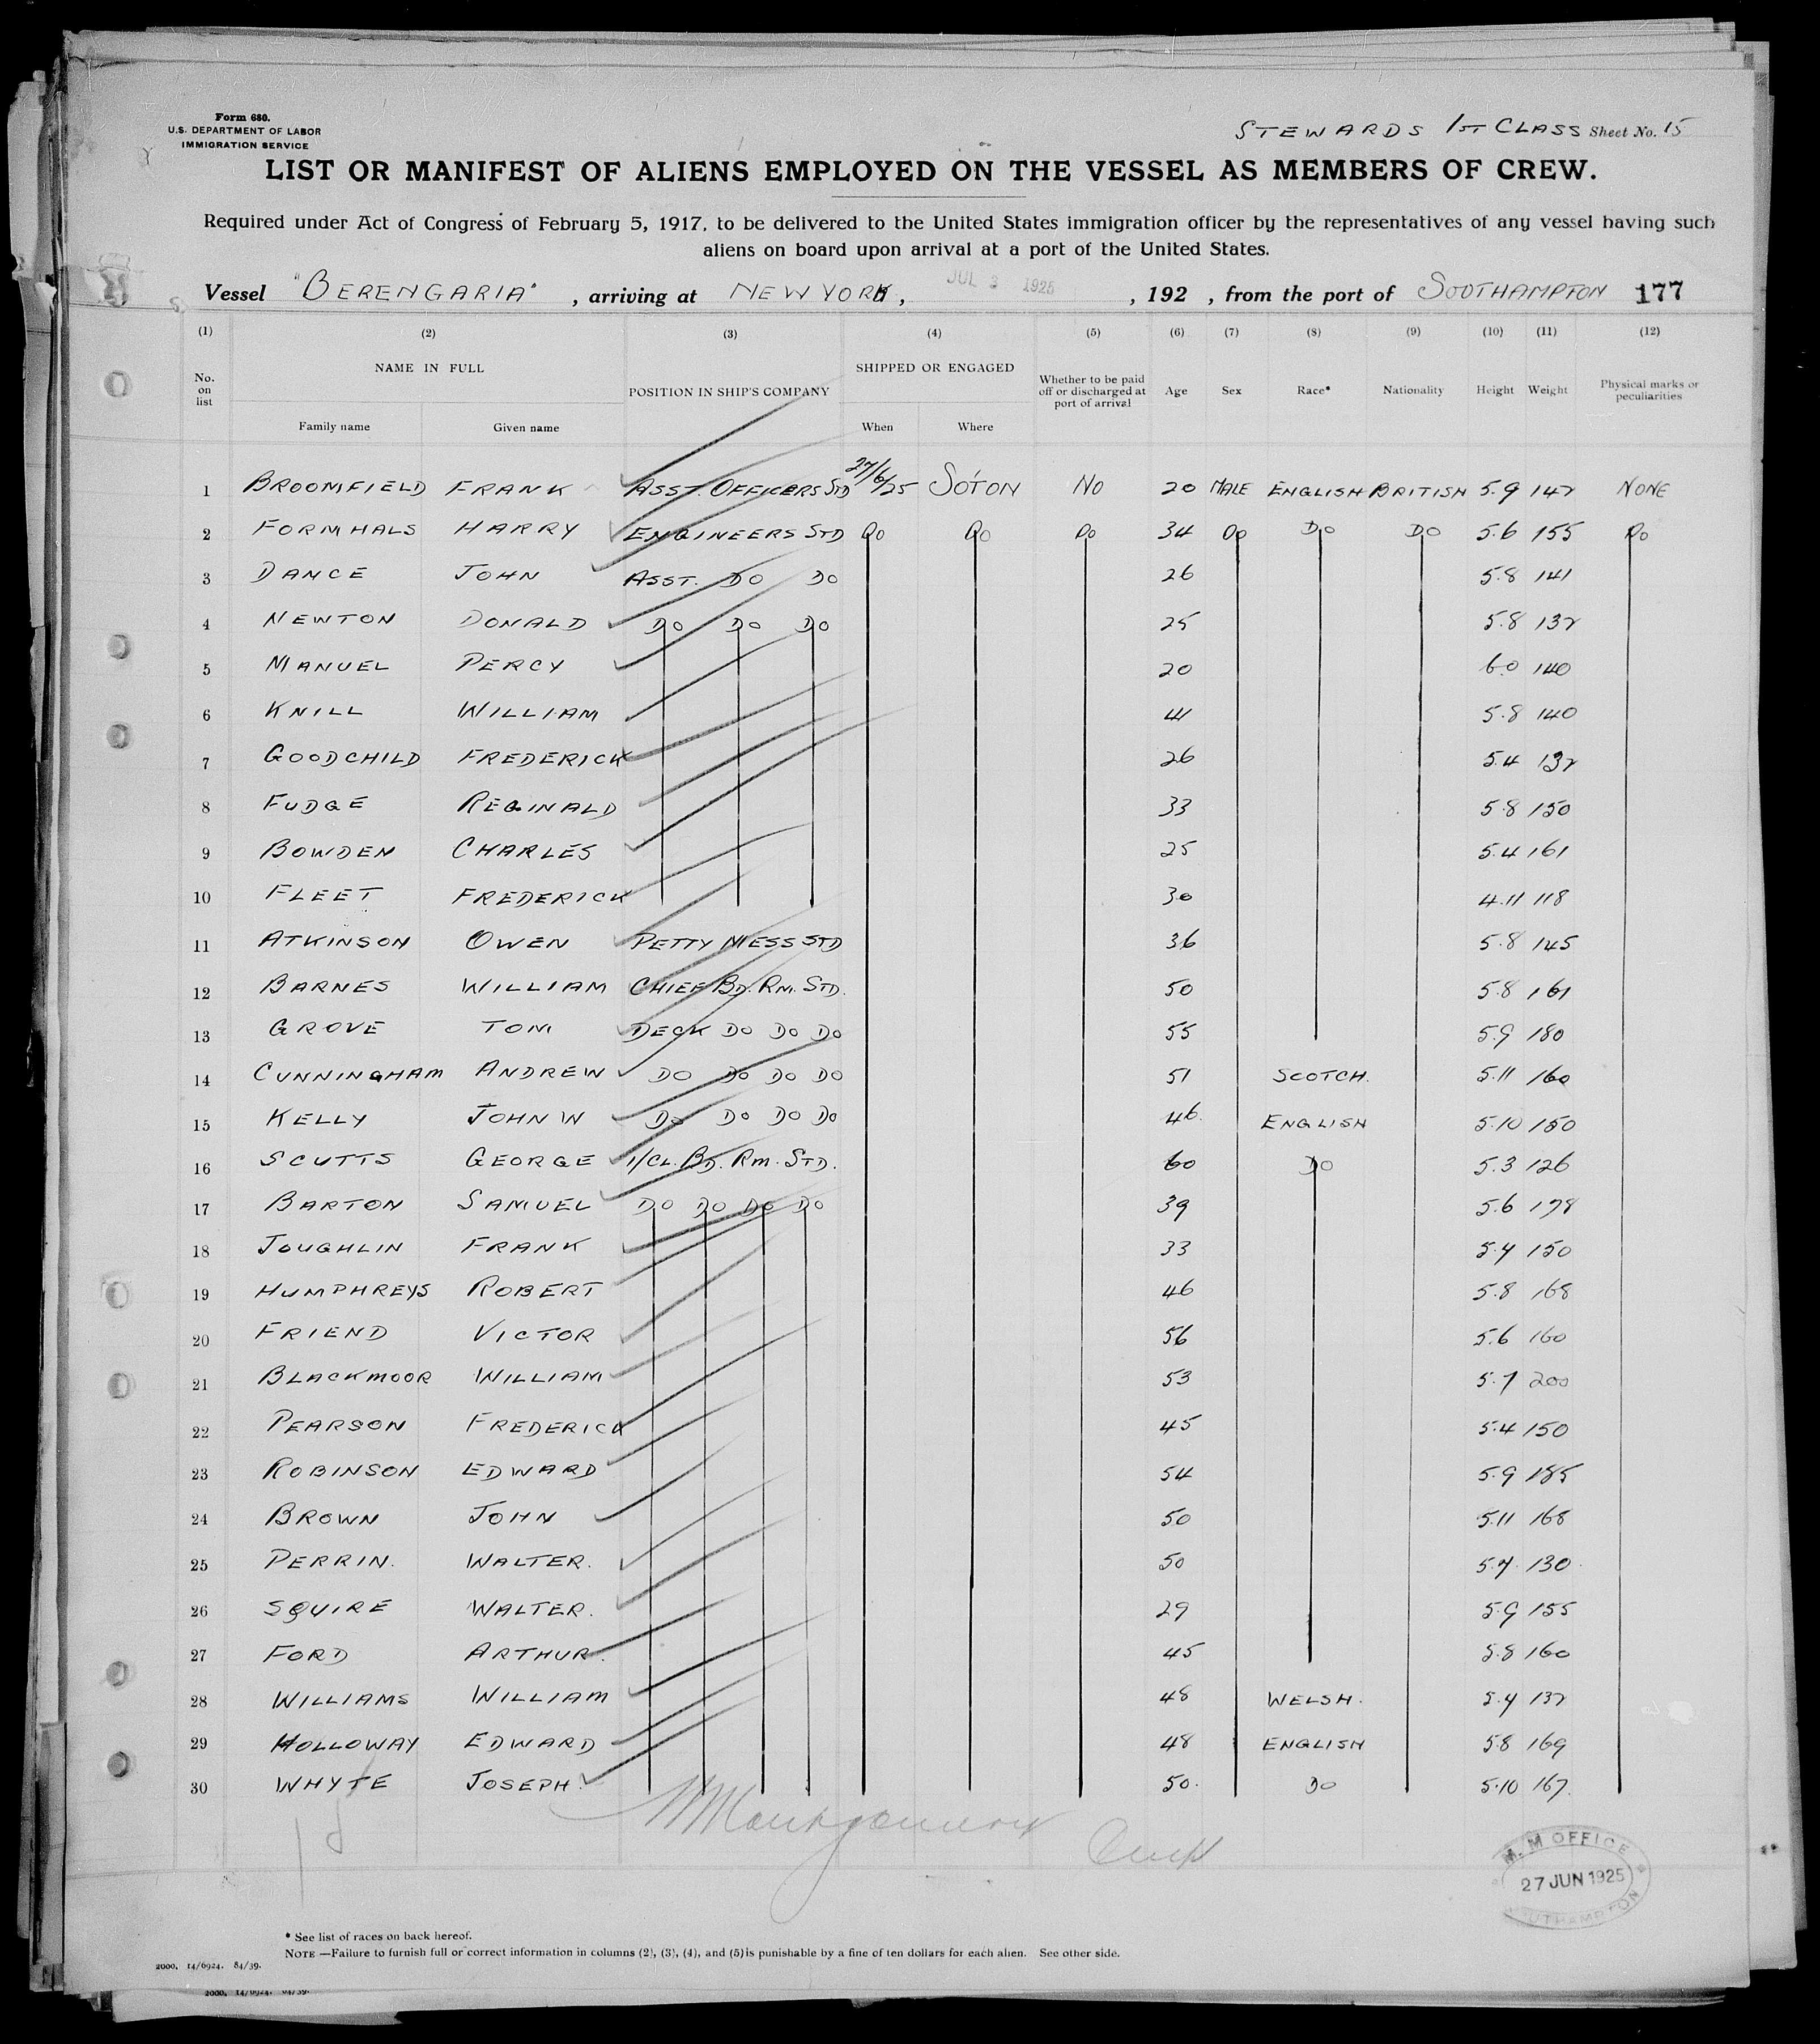 Form 680.
U.S. DEPARTMENT OF LABOR
IMMIGRATION SERVICE
STEWARDS 1ST CLASS Sheet No. 15
LIST OR MANIFEST OF ALIENS EMPLOYED ON THE VESSEL AS MEMBERS OF CREW.
Required under Act of Congress of February 5, 1917, to be delivered to the United States immigration officer by the representatives of any vessel having such
aliens on board upon arrival at a port of the United States.
Vessel "BERENGARIA" , arriving at NEW YORK , JUL 3 1925 , 192 , from the port of SOUTHAMPTON 177
(1) (2) (3) (4) (5) (6) (7) (8) (9) (10) (11) (12)
No. on list NAME IN FULL POSITION IN SHIP'S COMPANY SHIPPED OR ENGAGED Whether to be paid off or discharged at port of arrival Age Sex Race* Nationality Height Weight Physical marks or peculiarities
Family name Given name When Where
1 BROOMFIELD FRANK ASST. OFFICERS STD 27/6/25 SO'TON NO 20 MALE ENGLISH BRITISH 5.9 142 NONE
2 FORMHALS HARRY ENGINEERS STD DO DO DO 34 DO DO DO 5.6 155 DO
3 DANCE JOHN ASST. DO DO 26 5.8 141
4 NEWTON DONALD DO DO DO 25 5.8 132
5 MANUEL PERCY 20 6.0 140
6 KNILL WILLIAM 41 5.8 140
7 GOODCHILD FREDERICK 26 5.4 132
8 FUDGE REGINALD 33 5.8 150
9 BOWDEN CHARLES 25 5.4 161
10 FLEET FREDERICK 30 4.11 118
11 ATKINSON OWEN PETTY MESS STD 36 5.8 145
12 BARNES WILLIAM CHIEF BD. RM. STD. 50 5.8 161
13 GROVE TOM DECK DO DO DO 55 5.9 180
14 CUNNINGHAM ANDREW DO DO DO DO 51 SCOTCH. 5.11 160
15 KELLY JOHN W DO DO DO DO 46. ENGLISH 5.10 150
16 SCUTTS GEORGE 1/CL. BD. RM. STD. 60 DO 5.3 126
17 BARTON SAMUEL DO DO DO DO 39 5.6 178
18 JOUGHLIN FRANK 33 5.7 150
19 HUMPHREYS ROBERT 46 5.8 168
20 FRIEND VICTOR 56 5.6 160
21 BLACKMOOR WILLIAM 53 5.7 200
22 PEARSON FREDERICK 45 5.4 150
23 ROBINSON EDWARD 54 5.9 185
24 BROWN JOHN 50 5.11 168
25 PERRIN. WALTER. 50 5.7. 130
26 SQUIRE WALTER. 29 5.9 155
27 FORD ARTHUR. 45 5.8 160
28 WILLIAMS WILLIAM 48 WELSH. 5.7 132
29 HOLLOWAY EDWARD 48 ENGLISH 5.8 169
30 WHYTE JOSEPH. 50. DO 5.10 167.
Montgomery
M. M OFFICE
27 JUN 1925
SOUTHAMPTON
* See list of races on back hereof.
NOTE —Failure to furnish full or correct information in columns (2), (3), (4), and (5) is punishable by a fine of ten dollars for each alien. See other side.
2000, 14/6924. 84/39.
2000, 14/6924. 84/39.